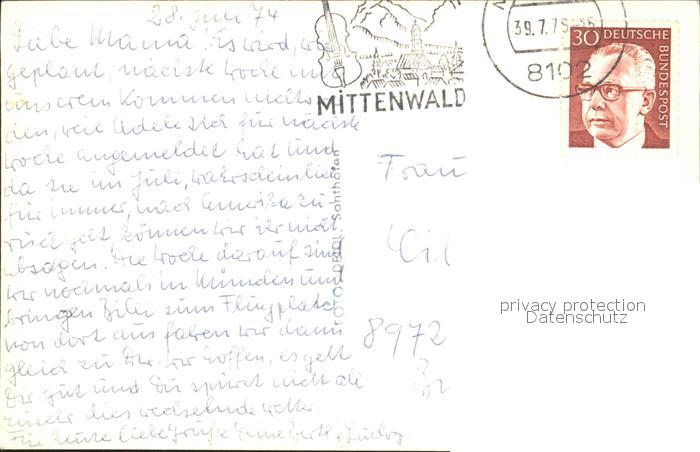 28. Juli 74
Liebe Mama! Es wird, wie
geplant, nächste Woche mit
unserem Kommen nichts
den, weil Adele sich für nächste
Woche angemeldet hat und
da sie im Juli, wahrscheinlich
für immer, nach Amerika zu
rück geht, können wir ihr nicht
absagen. Die Woche darauf sind
wir nochmals in München und
bringen zum Flugplatz
von dort aus fahren wir dann
gleich zu Dir. Wir hoffen, es geht
Dir gut und Du spürst nicht all
zu sehr dies wechselnde Wetter
Für heute liebe Grüße Deine
MITTENWALD
8102
30 DEUTSCHE
BUNDESPOST
Sonthofen
Frau
8972
privacy protection
Datenschutz